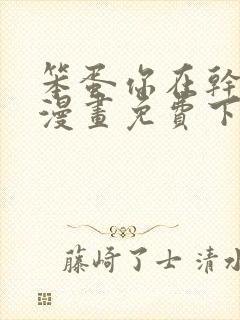 笨蛋你在幹
漫畫免費下
藤崎了士 清水